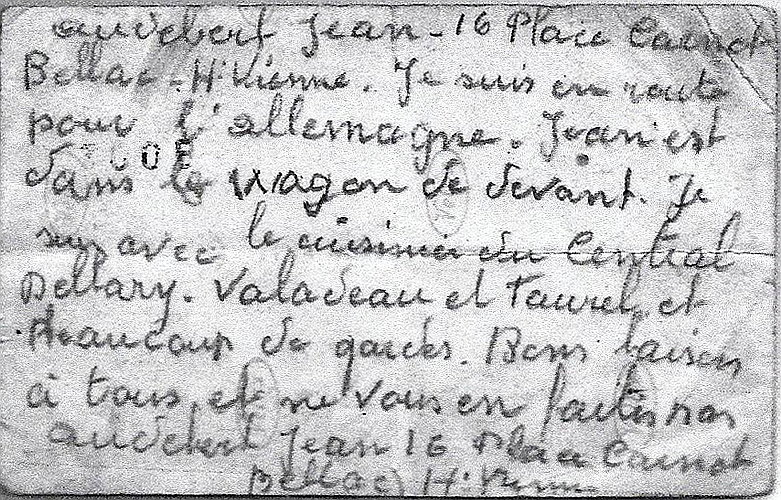 audebert Jean - 16 Place Carnot
Bellac - Hte Vienne. Je suis en route
pour l'allemagne. Jean est
dans le wagon de devant. Je
suis avec le cuisinier du Central
Dellary. Valadeau et Taurel, et
Beaucoup de gardes. Bons baisers
à tous, et ne vous en faites pas
audebert Jean 16 Place Carnot
Bellac H. Vienne